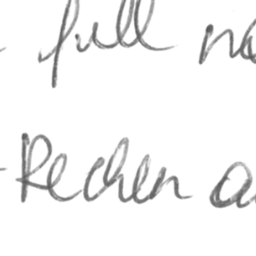 full
Rechen a